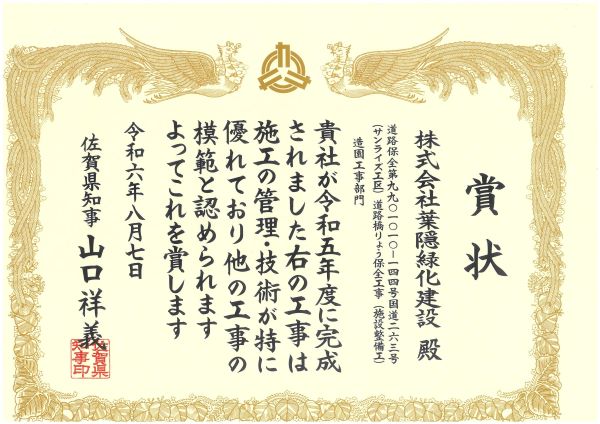 賞状
株式会社葉隠緑化建設 殿
道路保全第九九〇一〇一〇-一四四号国道二六三号
(サンライズ工区)道路橋りょう保全工事(施設整備工)
造園工事部門
貴社が令和五年度に完成
されました右の工事は
施工の管理・技術が特に
優れており他の工事の
模範と認められます
よってこれを賞します
令和六年八月七日
佐賀県知事 山口祥義
佐賀県
知事印